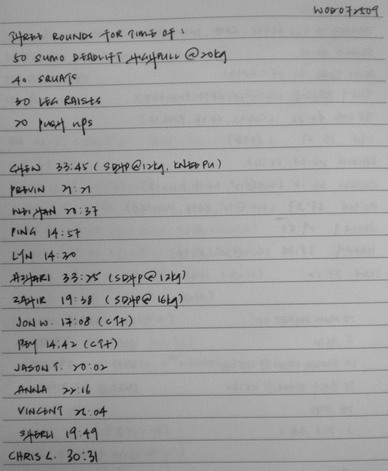 WOD072509
THREE ROUNDS FOR TIME OF:
50 SUMO DEADLIFT HIGHPULL @20kg
40 SQUATS
30 LEG RAISES
20 PUSH UPS
CHEN 33:45 (SDHP@12kg, KNEE PU)
PREVIN 21:21
WEI HAN 20:37
PING 14:57
LYN 14:30
AZHARI 33:25 (SDHP@12kg)
ZAHIR 19:38 (SDHP@ 16kg)
JON W. 17:08 (CFT)
14:42 (CFT)
JASON T. 20:02
ANNA 22:16
VINCENT 26:04
SHERLI 19:49
CHRIS L. 30:31